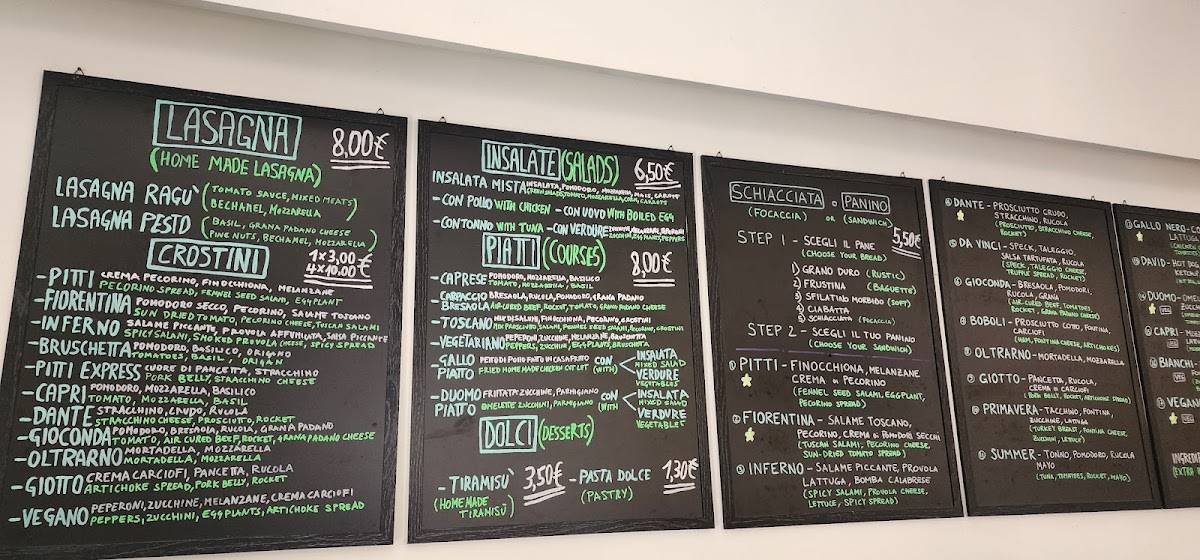 LASAGNA
8,00€
(HOME MADE LASAGNA)
LASAGNA RAGU' (TOMATO SAUCE, MIXED MEATS
BECHAMEL, MOZZARELLA)
LASAGNA PESTO (BASIL, GRANA PADANO CHEESE
PINE NUTS, BECHAMEL, MOZZARELLA)
CROSTINI
1x3,00€
4x10,00€
-PITTI CREMA PECORINO, FINOCCHIONA, MELANZANE
PECORINO SPREAD, FENNEL SEED SALAMI, EGGPLANT
-FIORENTINA POMODORO SECCO, PECORINO, SALAME TOSCANO
SUN DRIED TOMATO, PECORINO CHEESE, TUSCAN SALAMI
-INFERNO SALAME PICCANTE, PROVOLA AFFUMICATA, SALSA PICCANTE
SPICY SALAMI, SMOKED PROVOLA CHEESE, SPICY SPREAD
-BRUSCHETTA POMODORO, BASILICO, ORIGANO
TOMATOES, BASIL, ORIGANO
-PITTI EXPRESS CUORE DI PANCETTA, STRACCHINO
PORK BELLY, STRACCHINO CHEESE
-CAPRI POMODORO, MOZZARELLA, BASILICO
TOMATO, MOZZARELLA, BASIL
-DANTE STRACCHINO, CRUDO, RUCOLA
STRACCHINO CHEESE, PROSCIUTTO, ROCKET
-GIOCONDA POMODORO, BRESAOLA, RUCOLA, GRANA PADANO
TOMATO, AIR CURED BEEF, ROCKET, GRANA PADANO CHEESE
-OLTRARNO MORTADELLA, MOZZARELLA
MORTADELLA, MOZZARELLA
-GIOTTO CREMA CARCIOFI, PANCETTA, RUCOLA
ARTICHOKE SPREAD, PORK BELLY, ROCKET
-VEGANO PEPERONI, ZUCCHINE, MELANZANE, CREMA CARCIOFI
PEPPERS, ZUCCHINI, EGGPLANTS, ARTICHOKE SPREAD
INSALATE (SALADS)
6,50€
INSALATA MISTA INSALATA, POMODORO, MOZZARELLA, MAIS, CAROTE
-CON POLLO WITH CHICKEN -CON UOVO WITH BOILED EGG
-CON TONNO WITH TUNA -CON VERDURE ZUCCHINE, MELANZANE, PEPERONI
ZUCCHINI, EGGPLANTS, PEPPERS
PIATTI (COURSES)
8,00€
-CAPRESE POMODORO, MOZZARELLA, BASILICO
TOMATO, MOZZARELLA, BASIL
-CARPACCIO BRESAOLA, RUCOLA, POMODORO, GRANA PADANO
BRESAOLA AIR CURED BEEF, ROCKET, TOMATO, GRANA PADANO CHEESE
-TOSCANO MIX DI SALUMI, FINOCCHIONA, PECORINO, CROSTINI
MIX PROSCIUTTO, SALAMI, FENNEL SEED SALAMI, PECORINO, CROSTINI
-VEGETARIANO PEPERONI, ZUCCHINE, MELANZANE, BRUSCHETTA
PEPPERS, ZUCCHINI, EGGPLANTS, BRUSCHETTA
-GALLO PIATTO PETTO DI POLLO FRITTO IN CASA
FRIED HOME MADE CHICKEN CUTLET
CON (WITH)
INSALATA
MIXED SALAD
VERDURE
VEGETABLES
-DUOMO PIATTO FRITTATA ZUCCHINE, PARMIGIANO
OMELETTE ZUCCHINI, PARMIGIANO
CON (WITH)
INSALATA
MIXED SALAD
VERDURE
VEGETABLES
DOLCI (DESSERTS)
-TIRAMISU' 3,50€
(HOMEMADE TIRAMISÙ)
-PASTA DOLCE 1,30€
(PASTRY)
SCHIACCIATA o PANINO
(FOCACCIA) OR (SANDWICH)
5,50€
STEP 1 - SCEGLI IL PANE
(CHOOSE YOUR BREAD)
1) GRANO DURO (RUSTIC)
2) FRUSTINA (BAGUETTE)
3) SFILATINO MORBIDO (SOFT)
4) CIABATTA
5) SCHIACCIATA (FOCACCIA)
STEP 2 - SCEGLI IL TUO PANINO
(CHOOSE YOUR SANDWICH)
PITTI - FINOCCHIONA, MELANZANE
CREMA DI PECORINO
(FENNEL SEED SALAMI, EGGPLANT,
PECORINO SPREAD)
FIORENTINA - SALAME TOSCANO,
PECORINO, CREMA DI POMODORI SECCHI
(TUSCAN SALAMI, PECORINO CHEESE,
SUN-DRIED TOMATO SPREAD)
INFERNO - SALAME PICCANTE, PROVOLA
LATTUGA, BOMBA CALABRESE
(SPICY SALAMI, PROVOLA CHEESE,
LETTUCE, SPICY SPREAD)
DANTE - PROSCIUTTO CRUDO,
STRACCHINO, RUCOLA
(PROSCIUTTO, STRACCHINO CHEESE,
ROCKET)
DA VINCI - SPECK, TALEGGIO,
SALSA TARTUFATA, RUCOLA
(SPECK, TALEGGIO CHEESE,
TRUFFLE SPREAD, ROCKET)
GIOCONDA - BRESAOLA, POMODORI,
RUCOLA, GRANA
(AIR-CURED BEEF, TOMATOES
ROCKET, GRANA PADANO CHEESE)
BOBOLI - PROSCIUTTO COTTO, FONTINA,
CARCIOFI
(HAM, FONTINA CHEESE, ARTICHOKES)
OLTRARNO - MORTADELLA, MOZZARELLA
GIOTTO - PANCETTA, RUCOLA,
CREMA DI CARCIOFI
(PORK BELLY, ROCKET, ARTICHOKE SPREAD)
PRIMAVERA - TACCHINO, FONTINA,
ZUCCHINE, LATTUGA
(TURKEY BREAST, FONTINA CHEESE,
ZUCCHINI, LETTUCE)
SUMMER - TONNO, POMODORO, RUCOLA
MAYO
(TUNA, TOMATOES, ROCKET, MAYO)
GALLO NERO
LATTUG
DAVID - HOT DOG
DUOMO
CAPRI
VEG
BIANCHI
VEGANO
VEG
INGREDIE
(EXTRA